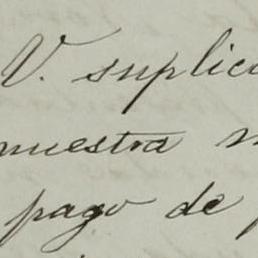 V. suplica
muestra
pago de